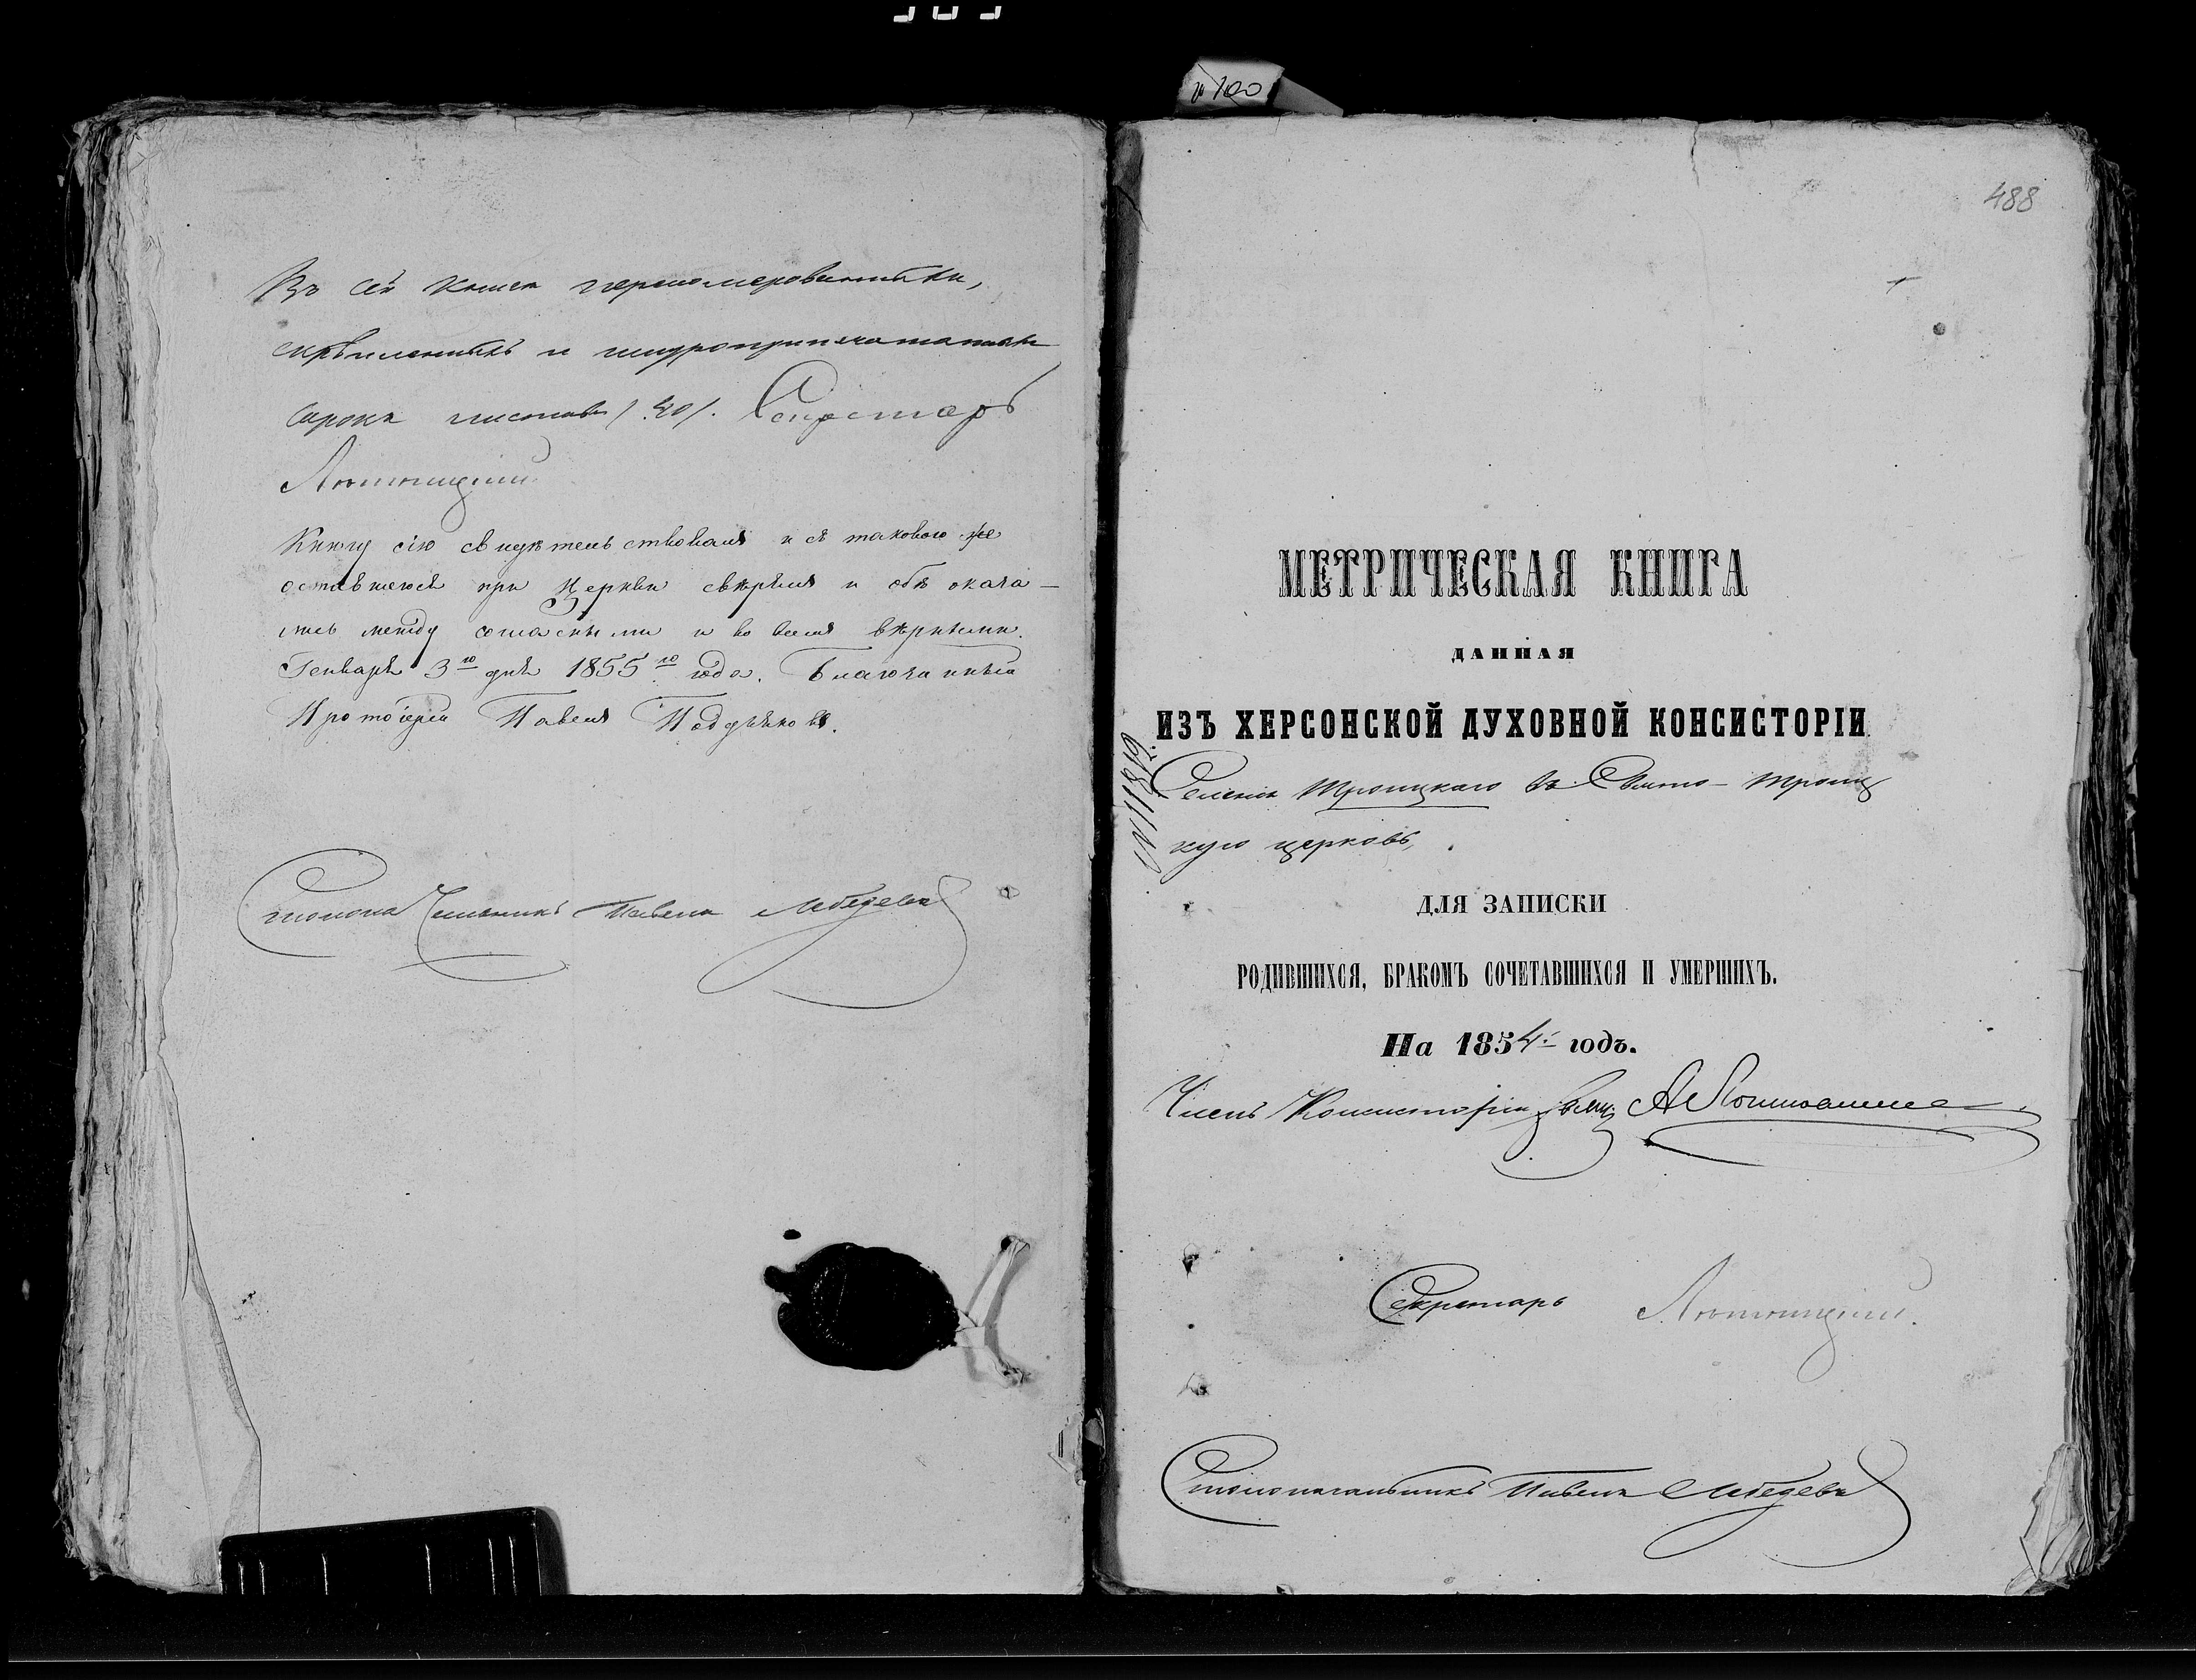 Въ сей книгѣ перенумерованныхъ,
скрѣпленныхъ и шнуроприпечатанныхъ
сорокъ листовъ /40/. Секретарь
Книгу сію свидѣтельствовалъ и съ таковою же
оставшеюся при Церкви свѣрялъ и обѣ оказа-
лись между согласными и во всемъ вѣрными.
Генваря 3го дня 1855го года. Благочинный
Протоіерей Павелъ
Столоначальникъ Павелъ Лебедевъ
№ 100
488
МЕТРИЧЕСКАЯ КНИГА
ДАННАЯ
ИЗЪ ХЕРСОНСКОЙ ДУХОВНОЙ КОНСИСТОРІИ
Селенія Троицкаго въ Свято-Троиц
кую церковь,
ДЛЯ ЗАПИСКИ
РОДИВШИХСЯ, БРАКОМЪ СОЧЕТАВШИХСЯ И УМЕРШИХЪ.
На 1854й годъ.
Членъ Консисторіи
Секретарь
Столоначальникъ Павелъ Лебедевъ